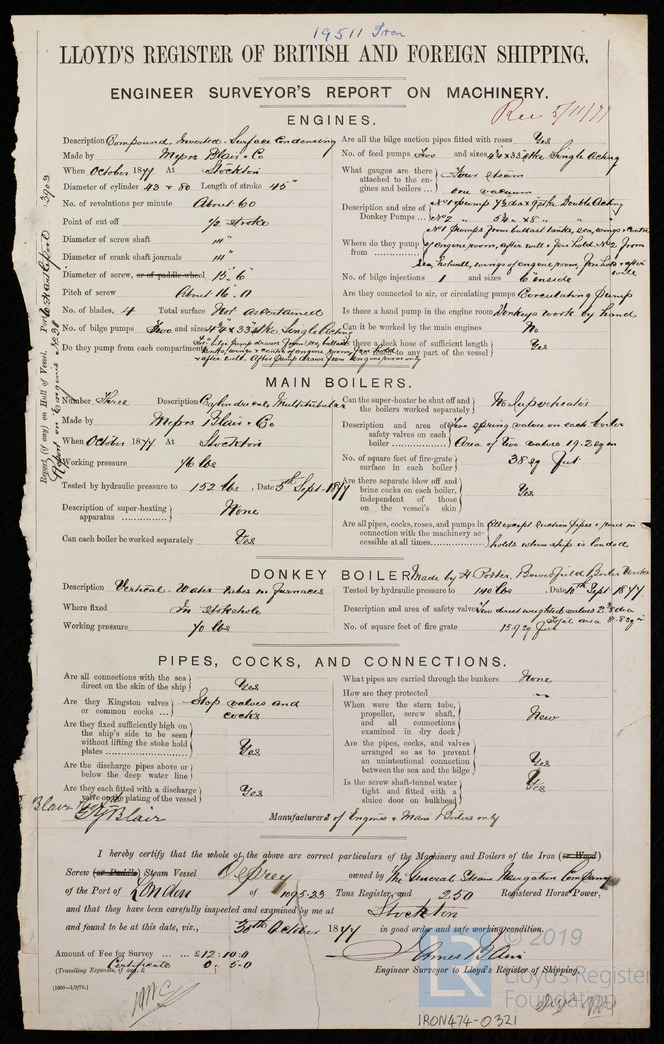 19511 Iron
LLOYD'S REGISTER OF BRITISH AND FOREIGN SHIPPING.
ENGINEER SURVEYOR'S REPORT ON MACHINERY.
Rec 5/11/77
ENGINES.
Description Compound, Inverted, Surface Condensing
Made by Messrs Blair & Co
When October 1877 At Stockton
Diameter of cylinder 43 & 80 Length of stroke 45"
No. of revolutions per minute About 60
Point of cut off 1/2 stroke
Diameter of screw shaft 14"
Diameter of crank shaft journals 14"
Diameter of screw, or of paddle wheel 15' 6"
Pitch of screw About 16.0
No. of blades, 4 Total surface Not ascertained
No. of bilge pumps Two and sizes 4 1/2" x 33" stke Single Acting
Do they pump from each compartment
& after well. After pump draws from engine room only
Are all the bilge suction pipes fitted with roses Yes
No. of feed pumps Two and sizes 4 1/2 x 33" stke Single Acting
What gauges are there attached to the engines and boilers Four steam
one vacuum
Description and size of Donkey Pumps No 1 pump 9" stke Double Acting
No 2 " 5 1/4 x 8" " "
Where do they pump from No 1 pumps from ballast tanks, sea, wings & centre
of engine room, after well & fore hold. No 2 from
Sea, hotwell, wings of engine room, fore hold & after well
No. of bilge injections 1 and sizes 6" inside
Are they connected to air, or circulating pumps Circulating pump
Is there a hand pump in the engine room Donkeys work by hand
Can it be worked by the main engines No
Is there a deck hose of sufficient length to lead to any part of the vessel Yes
Report (if any) on Hull of Vessel. Port
MAIN BOILERS.
Number, Three Description Cylindrical Multitubular
Made by Messrs Blair & Co
When October 1877 At Stockton
Working pressure 76 lbs
Tested by hydraulic pressure to 152 lbs, Date 5th Sept 1877
Description of super-heating apparatus None
Can each boiler be worked separately Yes
Can the super-heater be shut off and the boilers worked separately No Superheater
Description and area of safety valves on each boiler Two spring valves on each boiler
Area of two valves 19.2 sq in
No. of square feet of fire-grate surface in each boiler 38 sq feet
Are there separate blow off and brine cocks on each boiler, independent of those on the vessel's skin Yes
Are all pipes, cocks, roses, and pumps in connection with the machinery accessible at all times All except suction pipes & roses in
holds when ship is loaded
DONKEY BOILER Made by H Porter, Bowesfield Boiler Works
Description Vertical. Water tubes in furnaces
Where fixed In stokehole
Working pressure 70 lbs
Tested by hydraulic pressure to 140 lbs, Date 10th Sept 1877
Description and area of safety valves Two direct weighted valves 2 3/8 dia
Total area 8.8 sq in
No. of square feet of fire grate 15.9 sq feet
PIPES, COCKS, AND CONNECTIONS.
Are all connections with the sea direct on the skin of the ship Yes
Are they Kingston valves or common cocks Stop valves and
cocks
Are they fixed sufficiently high on the ship's side to be seen without lifting the stoke hold plates Yes
Are the discharge pipes above or below the deep water line
Are they each fitted with a discharge valve on the plating of the vessel Yes
What pipes are carried through the bunkers None
How are they protected —
When were the stern tube, propeller, screw shaft, and all connections examined in dry dock New
Are the pipes, cocks, and valves arranged so as to prevent an unintentional connection between the sea and the bilge Yes
Is the screw shaft-tunnel water tight and fitted with a sluice door on bulkhead Yes
Blair
Manufacturers of Engines & Main Boilers only
I hereby certify that the whole of the above are correct particulars of the Machinery and Boilers of the Iron (or Wood)
Screw (or Paddle) Steam Vessel Osprey owned by The General Steam Navigation Company
of the Port of London of 1095.23 Tons Register, and 250 Registered Horse Power,
and that they have been carefully inspected and examined by me at Stockton
and found to be at this date, viz., 30th October 1877 in good order and safe working condition.
Amount of Fee for Survey £12:10:0
Certificate 0. 5.0
(Travelling Expenses, if any, £
Engineer Surveyor to Lloyd's Register of Shipping.
IRON474-0321
LR
© 2019
Lloyd's Register
Foundation